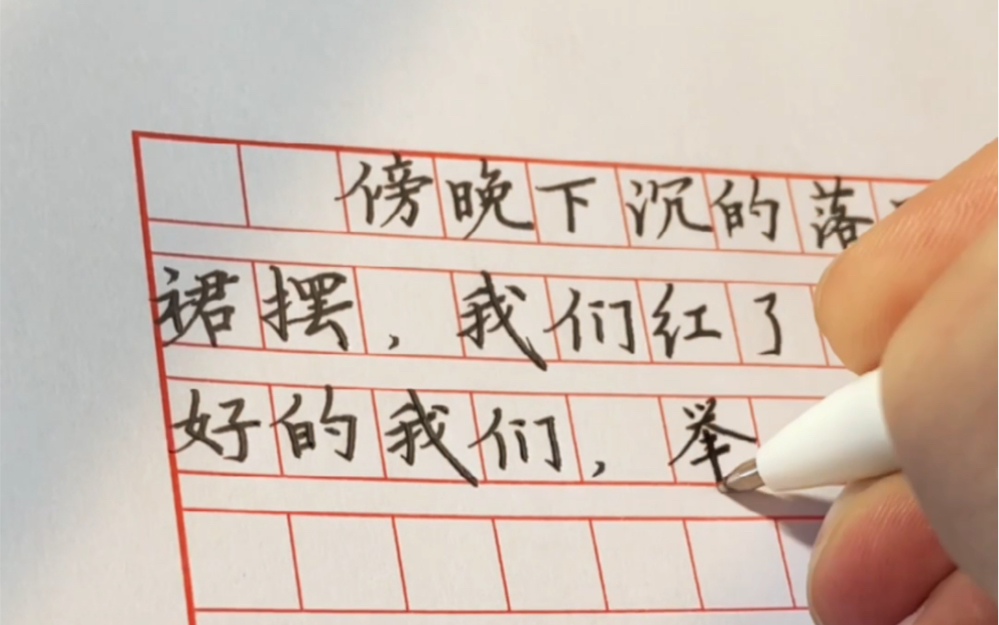 傍晚下沉的落
裙摆，我们红了
好的我们，举